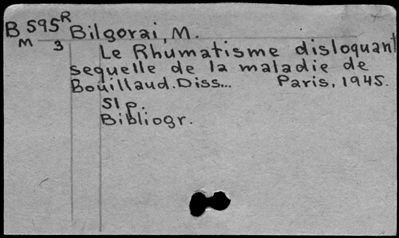 B 595R Bilgorai, M.
M 3
Le Rhumatisme disloquant
sequelle de la maladie de
Bouillaud. Diss... Paris, 1945.
51 p.
Bibliogr.